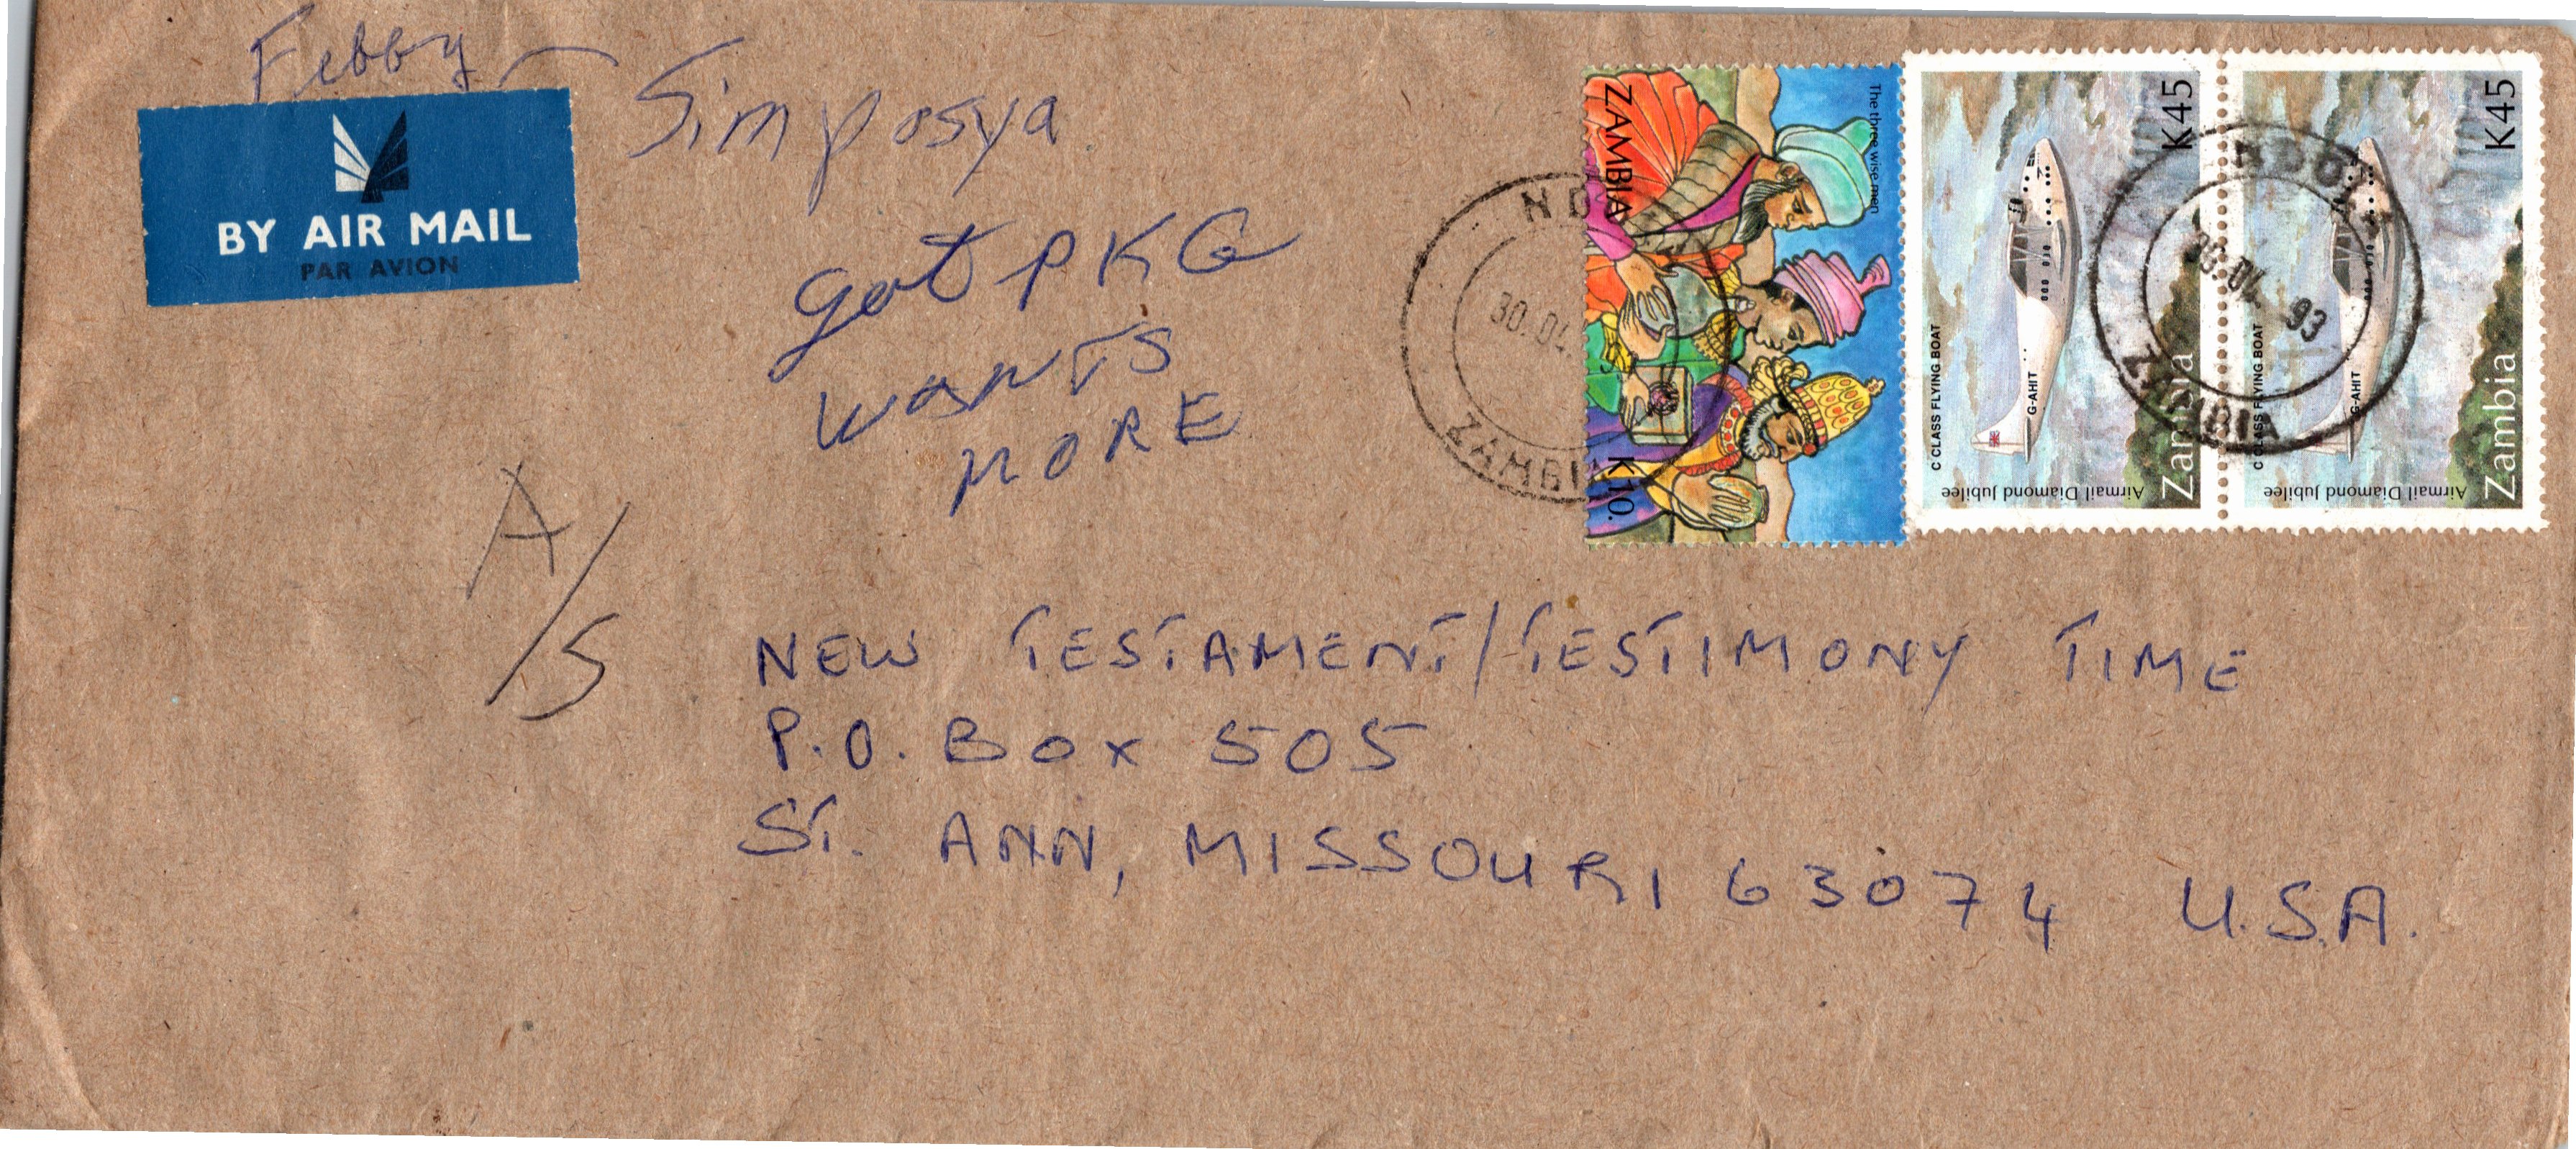 Febby
Simposya
BY AIR MAIL
PAR AVION
got PKG
WANTS
MORE
A/S
NEW TESTAMENT/TESTIMONY TIME
P.O. BOX 505
ST. ANN, MISSOURI 63074 U.S.A.
ZAMBIA
The three wise men
K10.
30.04.
ZAMBIA
C CLASS FLYING BOAT
G-AHIT
K45
Airmail Diamond Jubilee
Zambia
C CLASS FLYING BOAT
G-AHIT
K45
Airmail Diamond Jubilee
Zambia
NDOLA
30.04.93
ZAMBIA